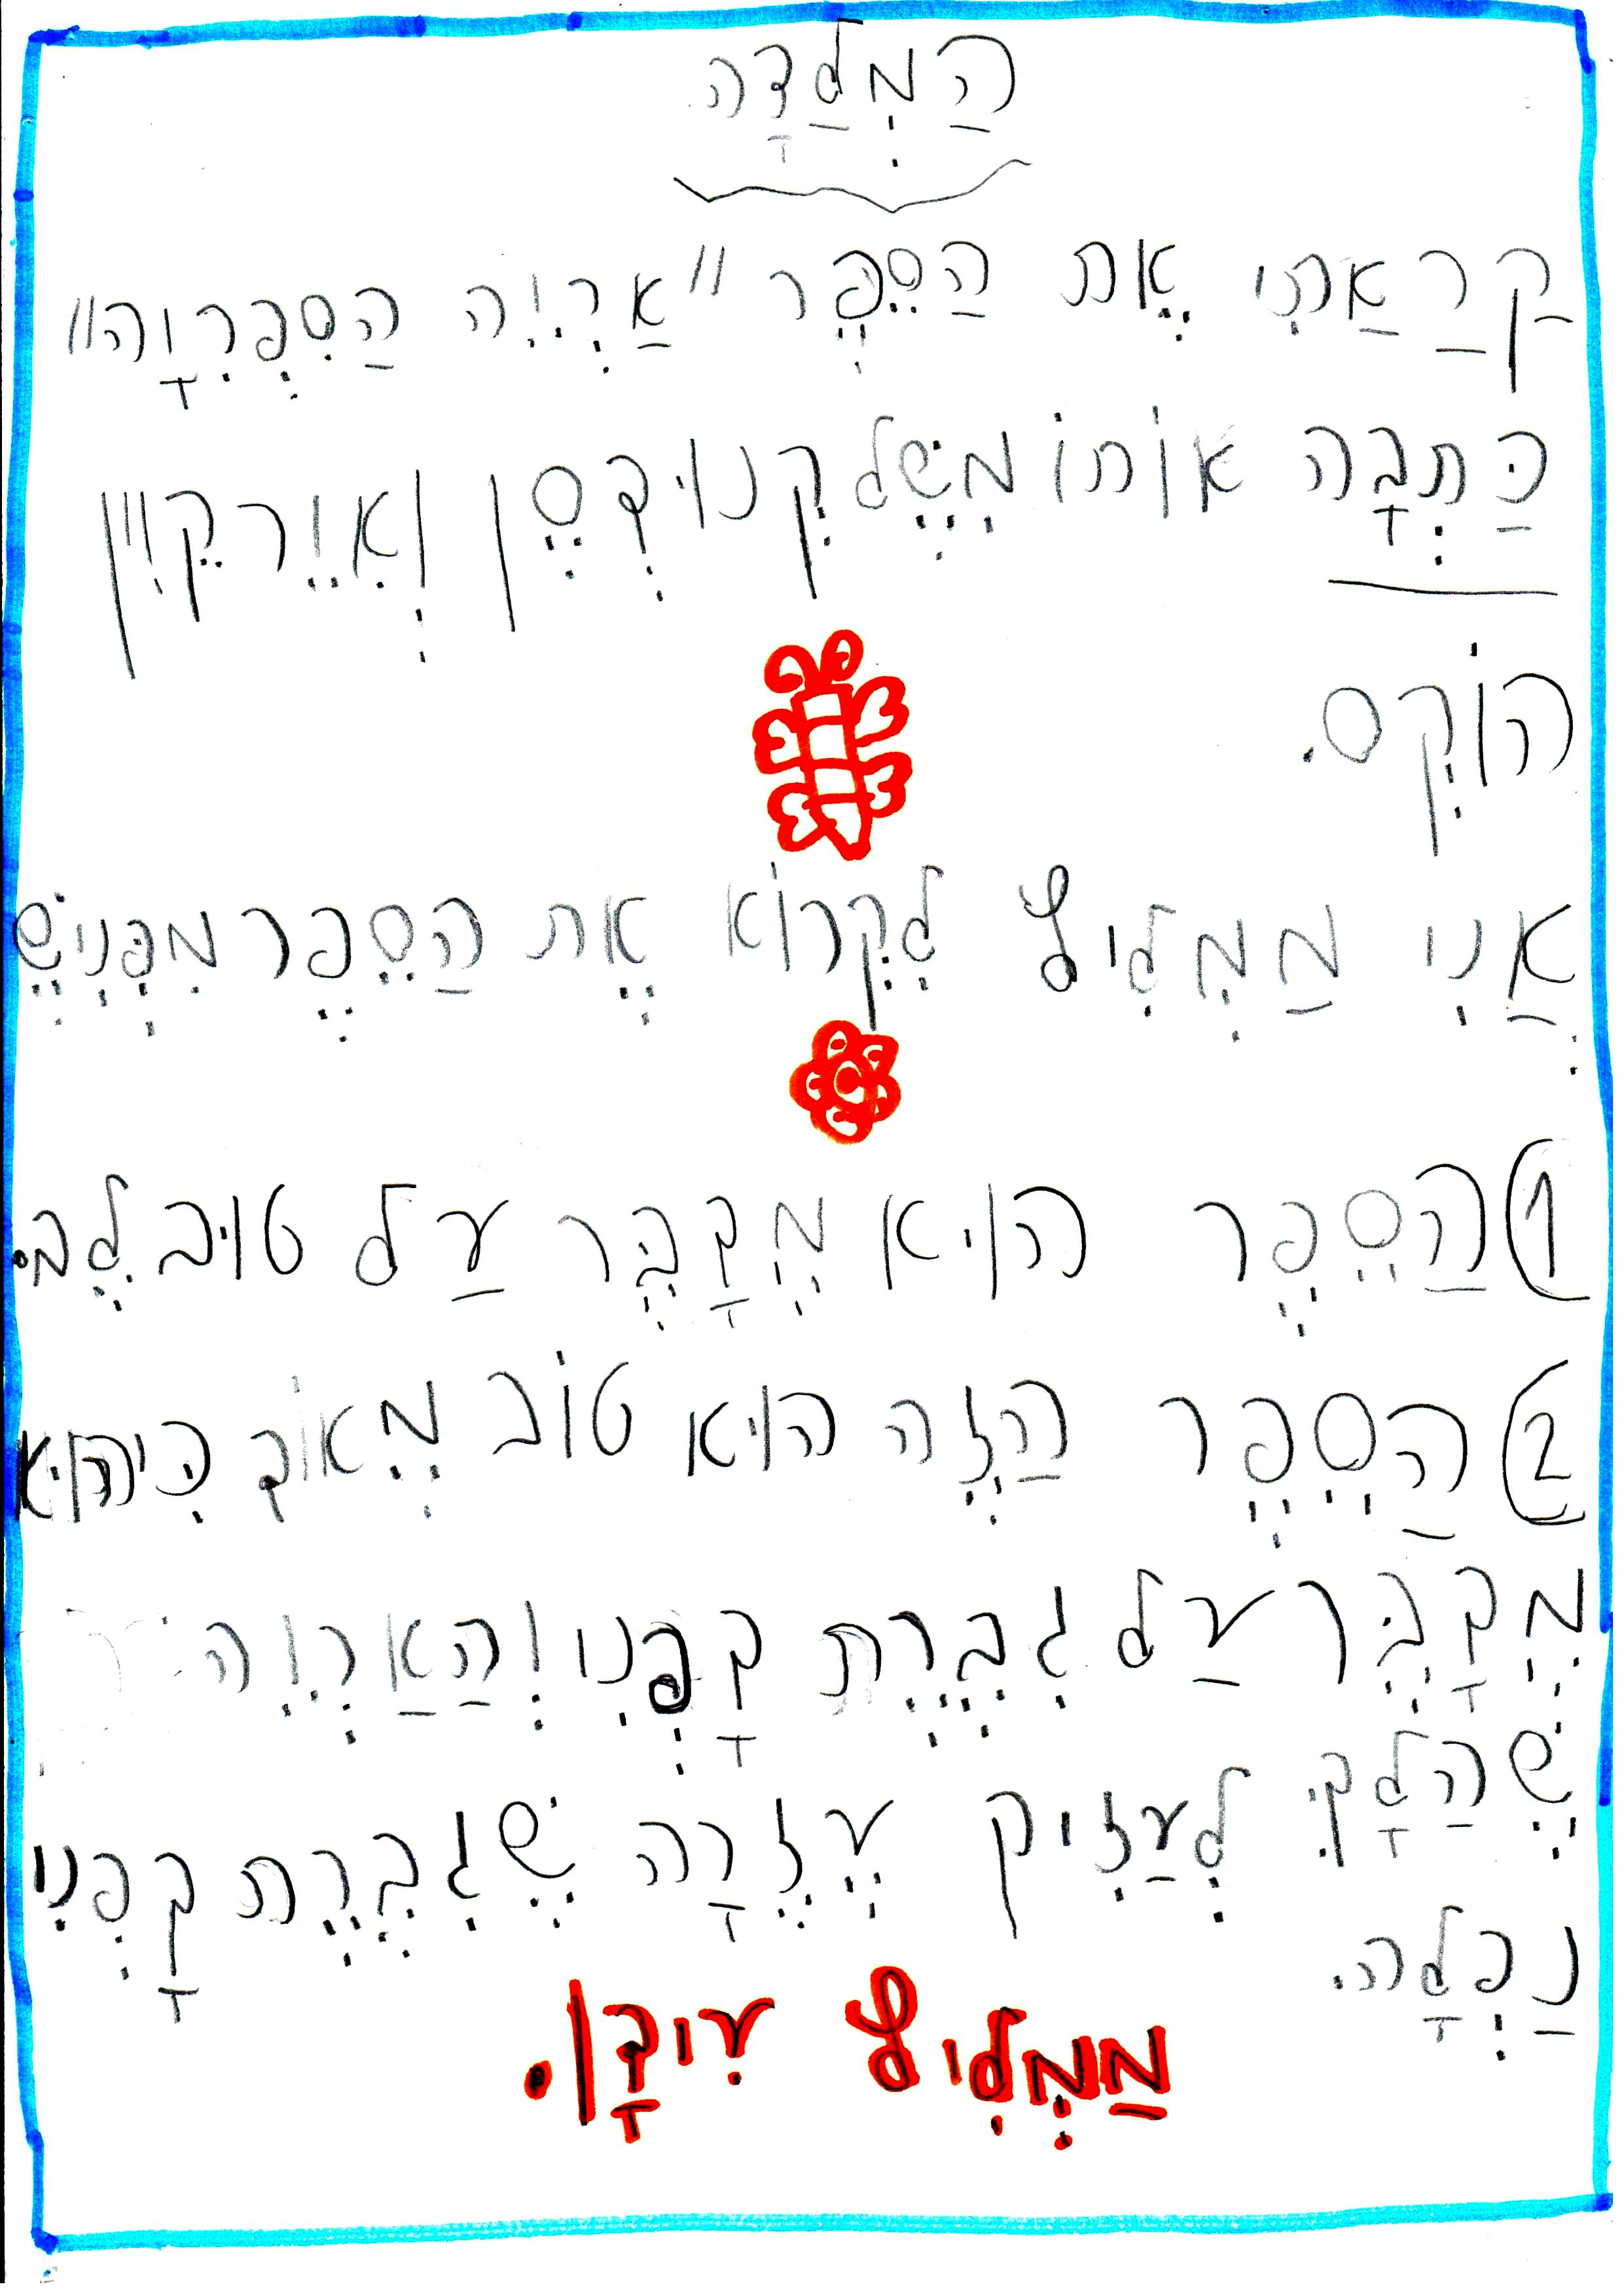 הַמְלַדָה
קַרַאתִי אֶת הַסֵפֶר "אַרְיֵה הַסִפְרִיָה"
כַּתְבָה אוֹתוֹ מִשֶׁל קְנוּדְסֶן וְאִיֶרקֶוִין
הוֹקְס.
אַנִי מַמְלִיץ לֶקְרוֹא אֶת הַסֵפֶר מִפְּנֵישֶׁ
הַסֵפֶר הוּא מֶדָבֶּר עַל טוּב לֶב.
1)
2) הַסֵפֶר הַזֶה הוּא טוֹב מְאוֹד כִּיהוּא
מֶדָבֶּר עַל גְבֶרֶת דָפְנִי וְהַאַרְיֵה
שֶׁהַלָךְ לְעַזִיק עֶזְרָה שֶׁגְבֶרֶת דָפְנִי
נַפְלָה.
מַמְלִיץ עִידָן.